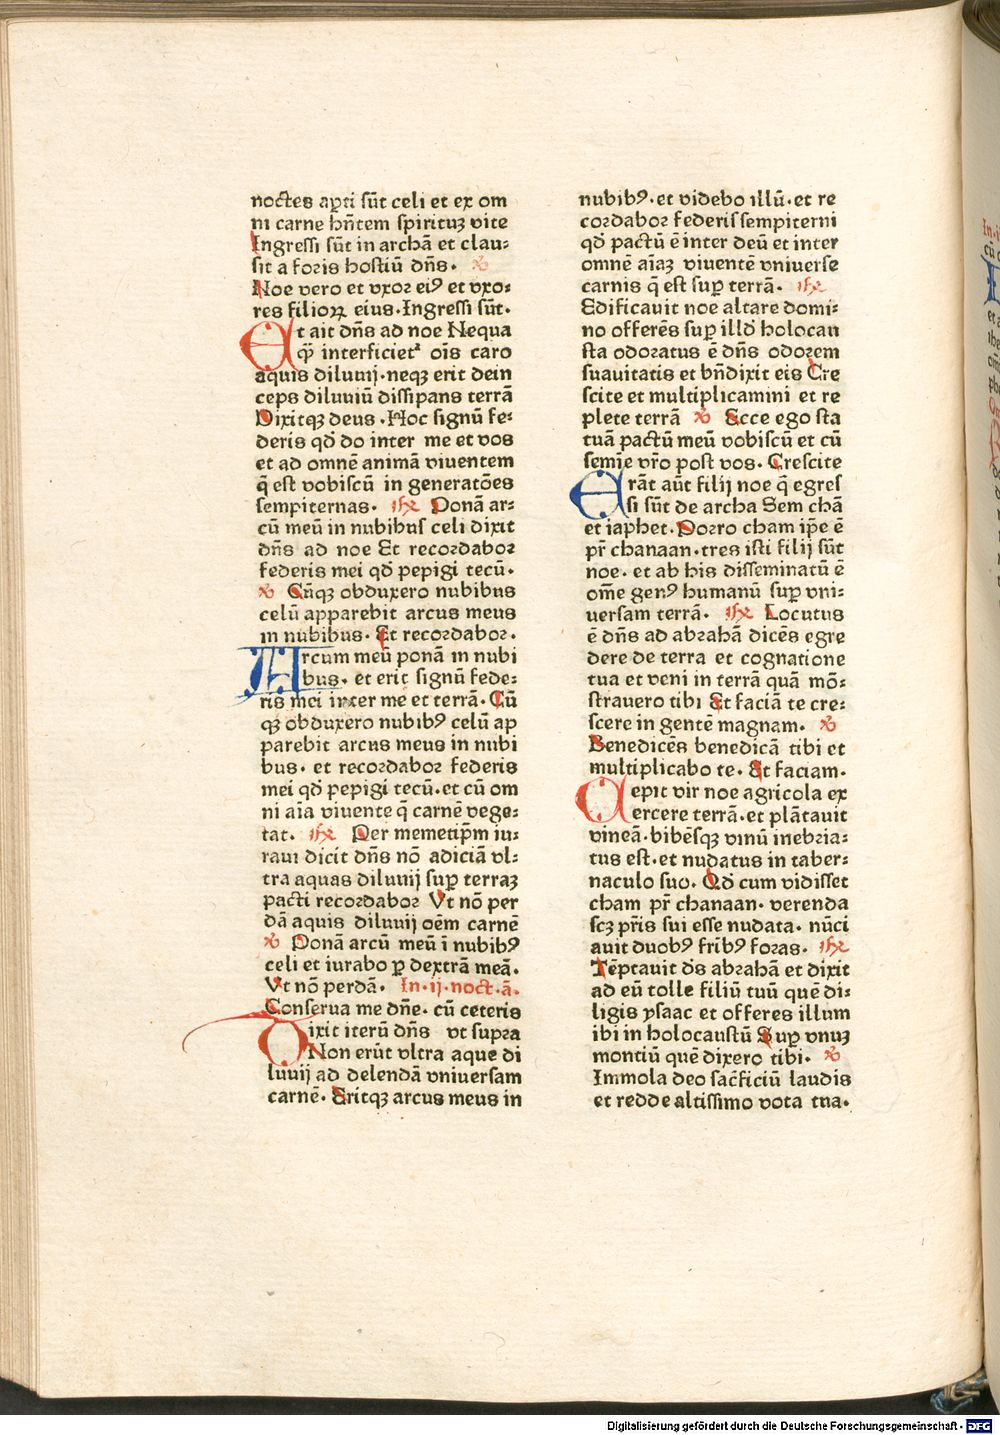 noctes apti sūt celi et ex om
ni carne hñtem spirituʒ vite
Ingressi sūt in archā et clau⸗
sit a foris hostiū dñs. ℣
Noe vero et vxor eiꝰ et vxo⸗
res filioꝝ eius. Ingressi sūt.
Et ait dñs ad noe Nequa
q̄ interficiet᷑ oīs caro
aquis diluuij. neqʒ erit dein
ceps diluuiū dissipans terrā
Dixitqʒ deus. Hoc signū fe⸗
deris qd̄ do inter me et vos
et ad omnē animā viuentem
q̄ est vobiscū in generatōes
sempiternas. Ponā ar⸗
cū meū in nubibus celi dixit
dñs ad noe Et recordabor
federis mei qd̄ pepigi tecū.
℣ Cūqʒ obduxero nubibus
celū apparebit arcus meus
in nubibus. Et recordabor.
Arcum meū ponā in nubi
bus. et erit signū fede⸗
ris mei inter me et terrā. Cū
qʒ obduxero nubibꝰ celū ap
parebit arcus meus in nubi
bus. et recordabor federis
mei qd̄ pepigi tecū. et cū om
ni aīa viuente q̄ carnē vege⸗
tat. Per memetip̄m iu⸗
raui dicit dñs nō adiciā vl⸗
tra aquas diluuij suꝑ terraʒ
pacti recordabor Vt nō per
dā aquis diluuij oēm carnē
℣ Ponā arcū meū ī nubibꝰ
celi et iurabo ꝑ dextrā meā.
Vt nō perdā. In. ij. noct. ā.
Conserua me dñe. cū ceteris
Dixit iterū dñs vt supra
Non erūt vltra aque di
luuij ad delendā vniuersam
carnē. Eritqʒ arcus meus in
nubibꝰ. et videbo illū. et re
cordabor federis sempiterni
qd̄ pactū ē inter deū et inter
omnē aīaʒ viuentē vniuerse
carnis q̄ est suꝑ terrā.
Edificauit noe altare domi⸗
no offerēs suꝑ illd̄ holocau
sta odoratus ē dñs odorem
suauitatis et bñdixit eis Cre
scite et multiplicamini et re
plete terrā ℣ Ecce ego sta
tuā pactū meū vobiscū et cū
semīe vr̄o post vos. Crescite
Erāt aūt filij noe q̄ egres
si sūt de archa Sem chā
et iaphet. Porro cham ip̄e ē
pr̄ chanaan. tres isti filij sūt
noe. et ab his disseminatū ē
om̄e genꝰ humanū suꝑ vni⸗
uersam terrā. Locutus
ē dñs ad abrahā dicēs egre
dere de terra et cognatione
tua et veni in terrā quā mō⸗
strauero tibi Et faciā te cre⸗
scere in gentē magnam. ℣
Benedicēs benedicā tibi et
multiplicabo te. Et faciam.
Cepit vir noe agricola ex
ercere terrā. et plātauit
vineā. bibēsqʒ vinū inebria⸗
tus est. et nudatus in taber⸗
naculo suo. Qd̄ cum vidisset
cham pr̄ chanaan. verenda
scʒ pr̄is sui esse nudata. nūci
auit duobꝰ fr̄ibꝰ foras.
Tēptauit d̄s abrahā et dixit
ad eū tolle filiū tuū quē di⸗
ligis ysaac et offeres illum
ibi in holocaustū Suꝑ vnuʒ
montiū quē dixero tibi. ℣
Immola deo sac̄ficiū laudis
et redde altissimo vota tua.
Digitalisierung gefördert durch die Deutsche Forschungsgemeinschaft - DFG